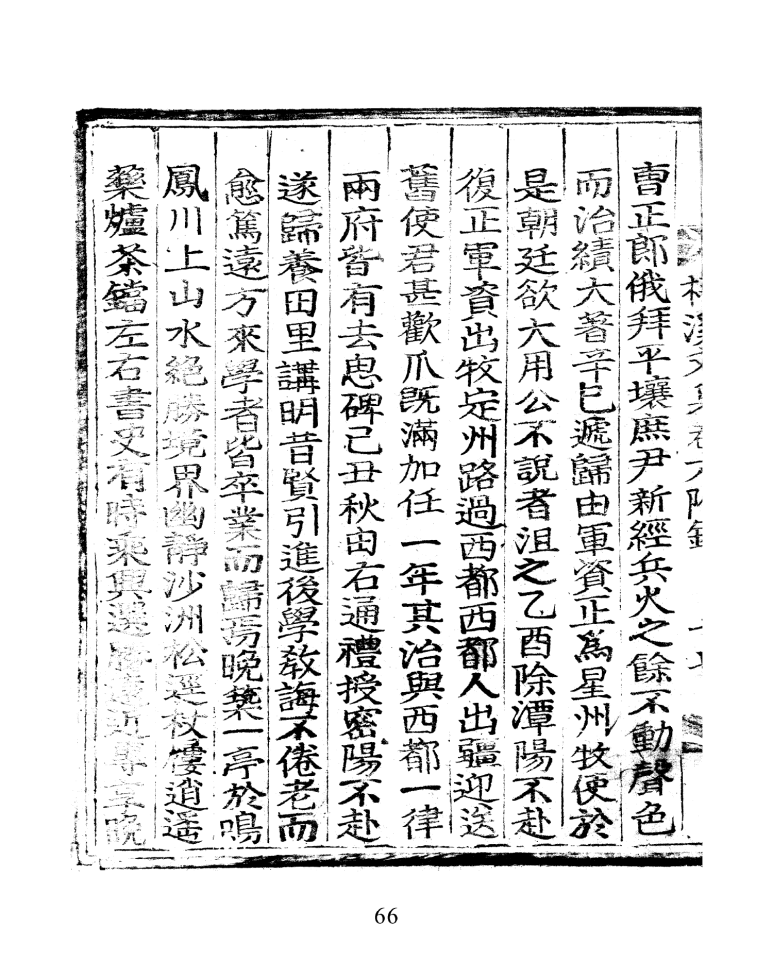 溪文集卷六附錄
曺正郎俄拜平壤庶尹新經兵火之餘不動聲色
而治績大著辛巳遞歸由軍資正爲星州牧使於
是朝廷欲大用公不說者沮之乙酉除潭陽不赴
復正軍資出牧定州路過西都西都人出疆迎送
舊使君甚歡爪旣滿加任一年其治與西都一律
兩府皆有去思碑己丑秋由右通禮授密陽不赴
遂歸養田里講明昔賢引進後學敎誨不倦老而
愈篤遠方來學者皆卒業而歸焉晩築一亭於鳴
鳳川上山水絶勝境界幽靜沙洲松逕杖屨逍遙
藥爐茶鐺左右書史有時乘興選勝遠近專享晩
66